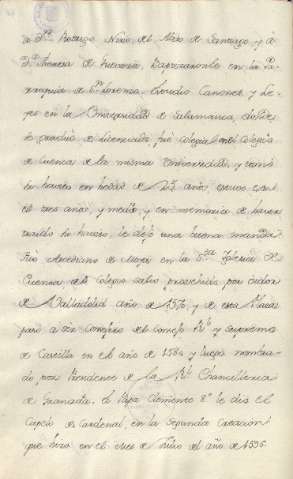 de Dn Rodrigo Niño del Abito de Santiago y de
Dª Theresa de Guevara, Baptizaronle en la Pa-
rroquia de Sn Lorenzo. Estudio Canones y Le-
yes en la Universidad de Salamanca, donde
se graduó de Licenciado, fué Colegial en el Colegio
de Cuenca de la misma Universidad, y tomó
su havito en hedad de 23 años, estuvo con
el tres años, y medio, y en memoria de haver
tenido su havito, le dejó una buena manda
Fue Arcediano de Moya en la Sta Iglesia de
Cuenca, del Colegio salio provehido por oidor
de Valladolid año de 1576, y de esta Plaza
pasó a ser Consejero del Consejo Rl y Supremo
de Castilla en el año de 1580 y luego nombra-
do por Presidente de la Rl Chancilleria
de Granada. El Papa Clemente 8º le dió el
Capelo de Cardenal, en la segunda creacion
que hizo en el mes de Junio del año de 1596